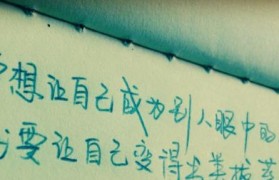 想让自己成为别人眼中的
要让自己变得出类拔萃